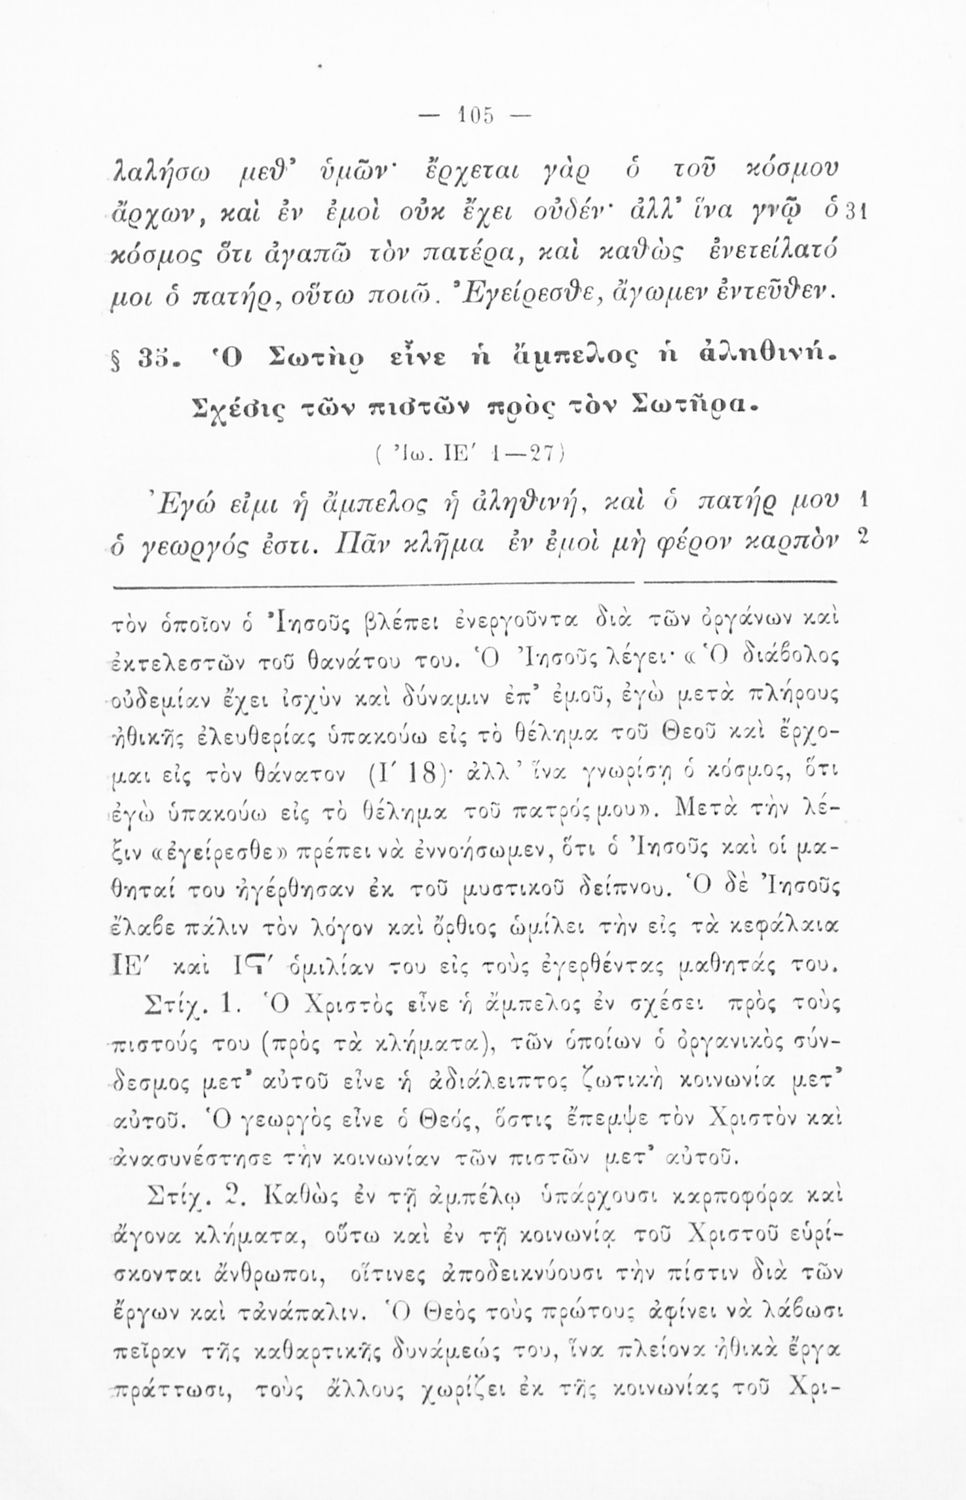 — 105 —
λαλήσω μεθ’ ὑμῶν· ἔρχεται γὰρ ὁ τοῦ κόσμου
ἄρχων, καὶ ἐν ἐμοὶ οὐκ ἔχει οὐδέν· ἀλλ’ ἵνα γνῷ ὁ 31
κόσμος ὅτι ἀγαπῶ τὸν πατέρα, καὶ καθὼς ἐνετείλατό
μοι ὁ πατήρ, οὕτω ποιῶ. Ἐγείρεσθε, ἄγωμεν ἐντεῦθεν.
§ 35. Ὁ Σωτὴρ εἶνε ἡ ἄμπελος ἡ ἀληθινή.
Σχέσις τῶν πιστῶν πρὸς τὸν Σωτῆρα.
( Ἰω. ΙΕ′ 1—27)
Ἐγώ εἰμι ἡ ἄμπελος ἡ ἀληθινή, καὶ ὁ πατήρ μου 1
ὁ γεωργός ἐστι. Πᾶν κλῆμα ἐν ἐμοὶ μὴ φέρον καρπὸν 2
τὸν ὁποῖον ὁ Ἰησοῦς βλέπει ἐνεργοῦντα διὰ τῶν ὀργάνων καὶ
ἐκτελεστῶν τοῦ θανάτου του. Ὁ Ἰησοῦς λέγει· «Ὁ διάβολος
οὐδεμίαν ἔχει ἰσχὺν καὶ δύναμιν ἐπ’ ἐμοῦ, ἐγὼ μετὰ πλήρους
ἠθικῆς ἐλευθερίας ὑπακούω εἰς τὸ θέλημα τοῦ Θεοῦ καὶ ἔρχο-
μαι εἰς τὸν θάνατον (Ι′ 18)· ἀλλ’ ἵνα γνωρίσῃ ὁ κόσμος, ὅτι
ἐγὼ ὑπακούω εἰς τὸ θέλημα τοῦ πατρός μου». Μετὰ τὴν λέ-
ξιν «ἐγείρεσθε» πρέπει νὰ ἐννοήσωμεν, ὅτι ὁ Ἰησοῦς καὶ οἱ μα-
θηταί του ἠγέρθησαν ἐκ τοῦ μυστικοῦ δείπνου. Ὁ δὲ Ἰησοῦς
ἔλαβε πάλιν τὸν λόγον καὶ ὄρθιος ὡμίλει τὴν εἰς τὰ κεφάλαια
ΙΕ′ καὶ ΙϚ′ ὁμιλίαν του εἰς τοὺς ἐγερθέντας μαθητάς του.
Στίχ. 1. Ὁ Χριστὸς εἶνε ἡ ἄμπελος ἐν σχέσει πρὸς τοὺς
πιστούς του (πρὸς τὰ κλήματα), τῶν ὁποίων ὁ ὀργανικὸς σύν-
δεσμος μετ’ αὐτοῦ εἶνε ἡ ἀδιάλειπτος ζωτικὴ κοινωνία μετ’
αὐτοῦ. Ὁ γεωργὸς εἶνε ὁ Θεός, ὅστις ἔπεμψε τὸν Χριστὸν καὶ
ἀνασυνέστησε τὴν κοινωνίαν τῶν πιστῶν μετ’ αὐτοῦ.
Στίχ. 2. Καθὼς ἐν τῇ ἀμπέλῳ ὑπάρχουσι καρποφόρα καὶ
ἄγονα κλήματα, οὕτω καὶ ἐν τῇ κοινωνίᾳ τοῦ Χριστοῦ εὑρί-
σκονται ἄνθρωποι, οἵτινες ἀποδεικνύουσι τὴν πίστιν διὰ τῶν
ἔργων καὶ τἀνάπαλιν. Ὁ Θεὸς τοὺς πρώτους ἀφίνει νὰ λάβωσι
πεῖραν τῆς καθαρτικῆς δυνάμεώς του, ἵνα πλείονα ἠθικὰ ἔργα
πράττωσι, τοὺς ἄλλους χωρίζει ἐκ τῆς κοινωνίας τοῦ Χρι-